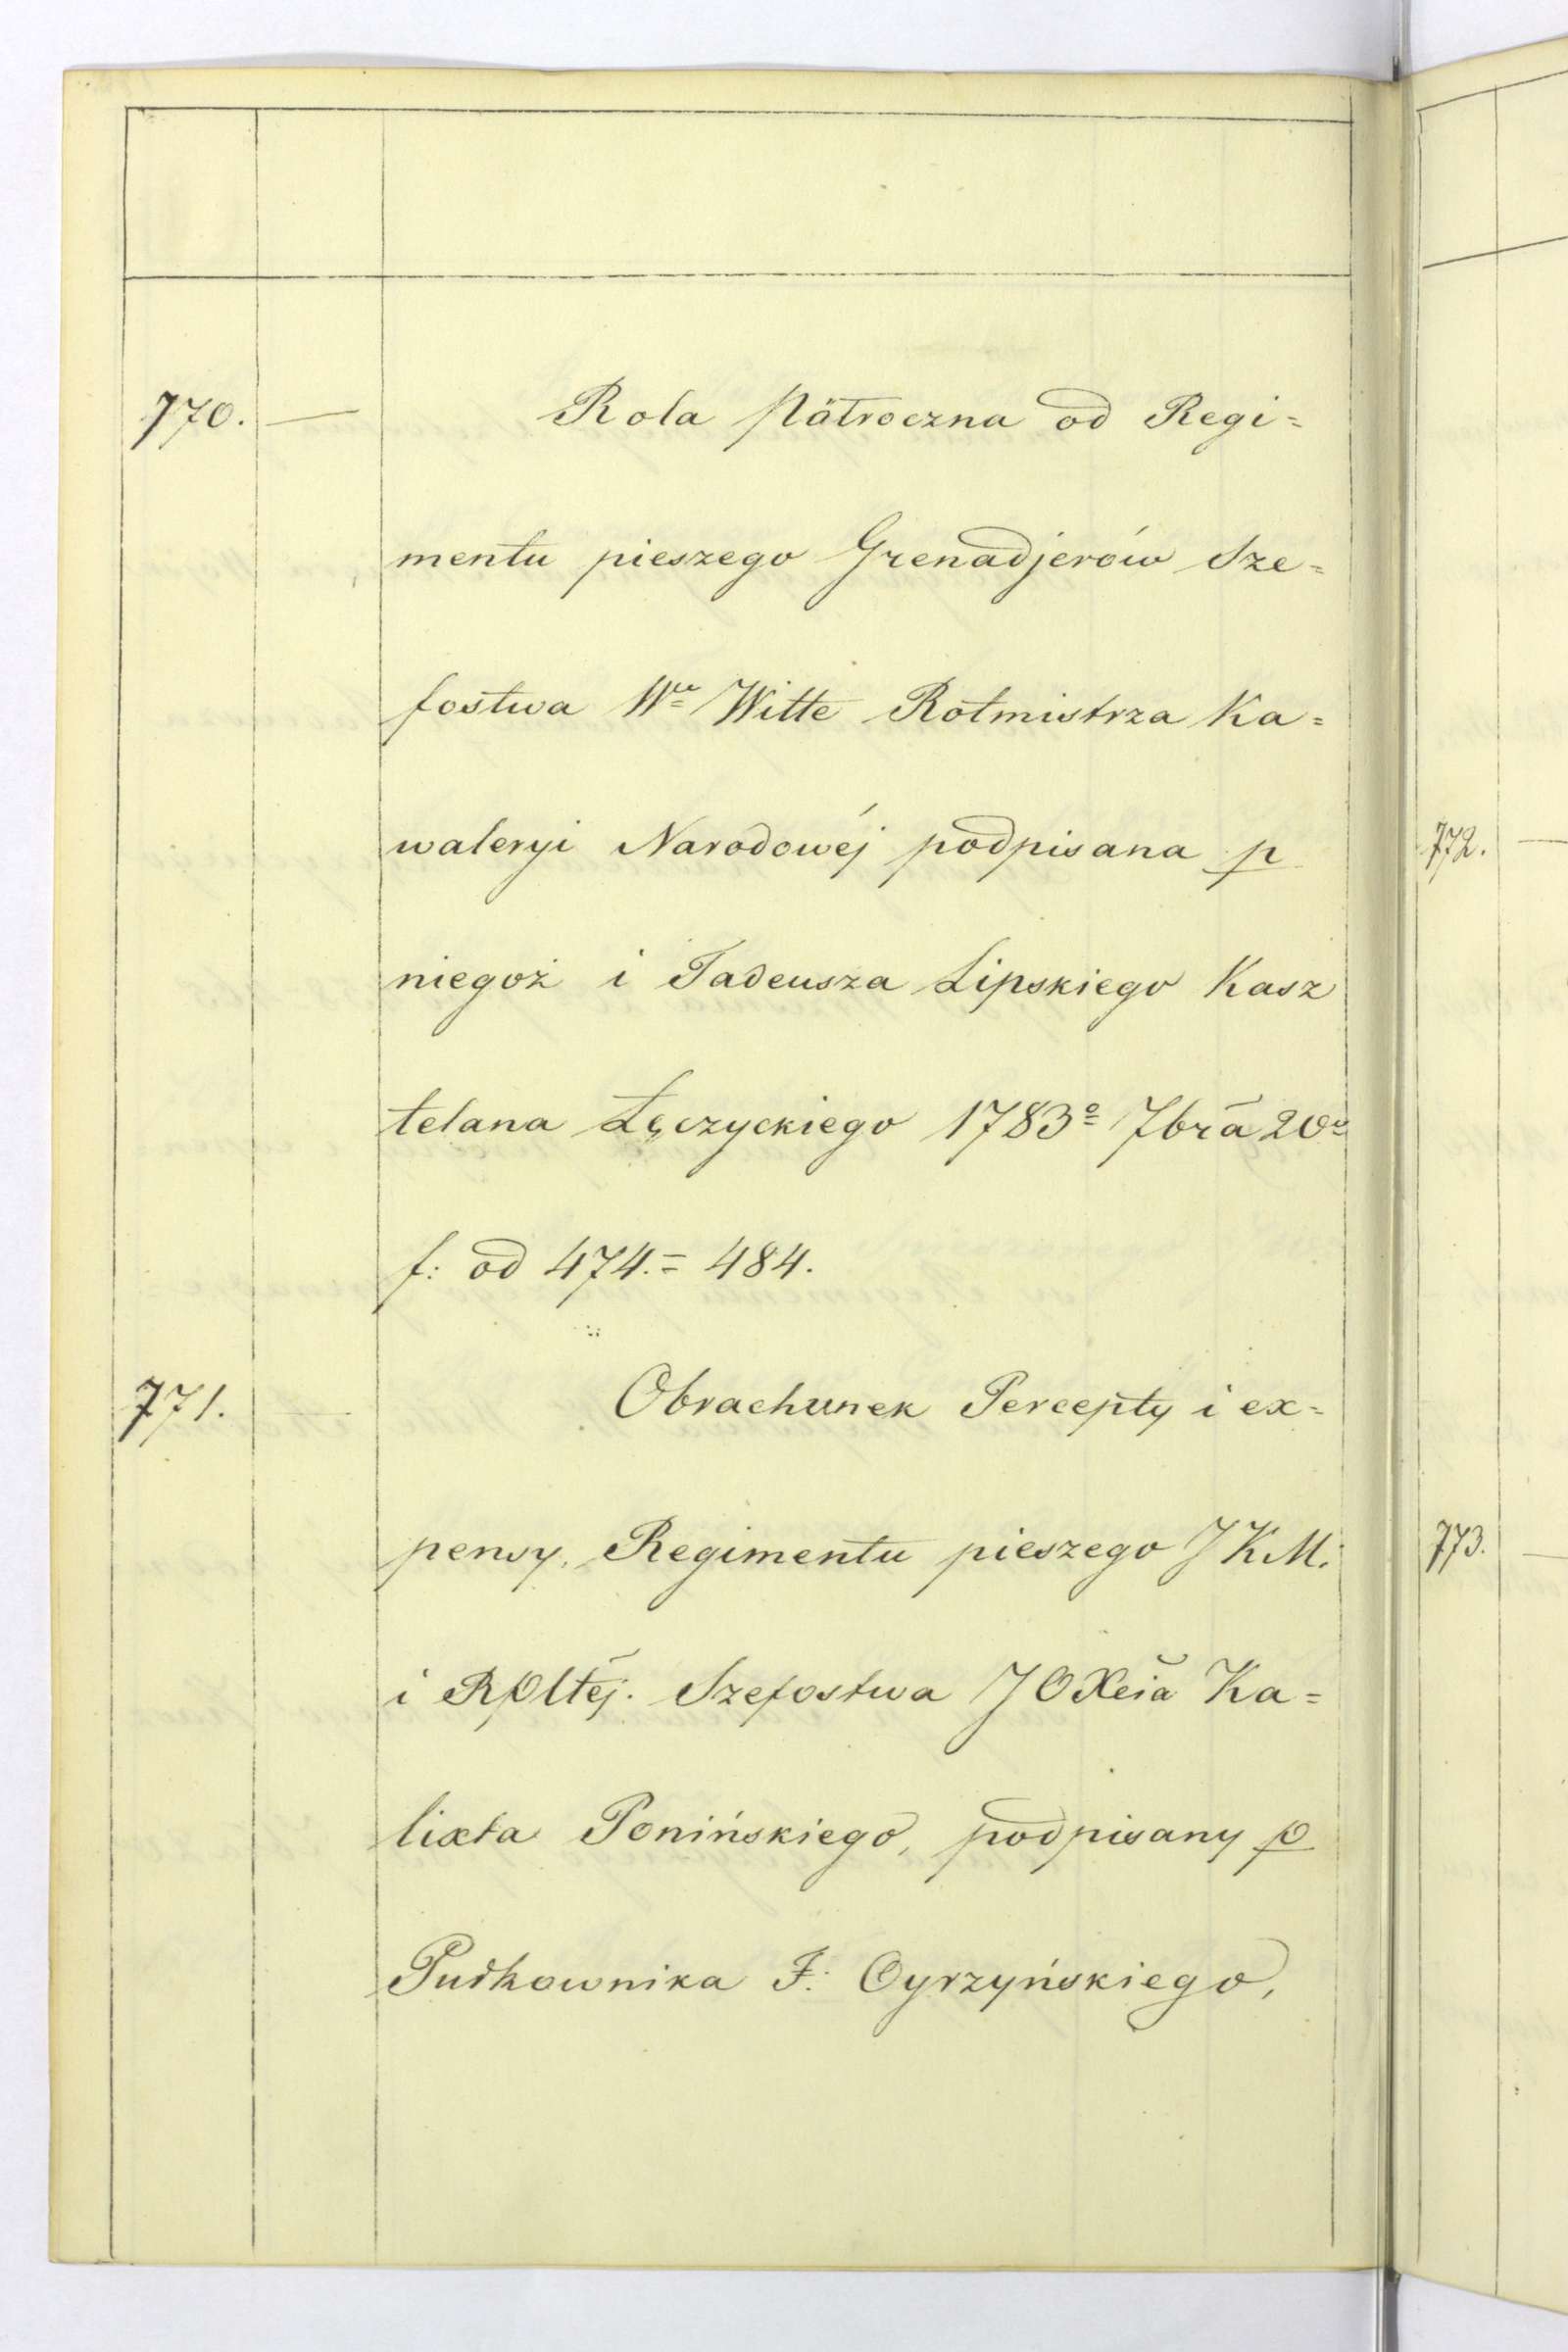 770. — Rola półroczna od Regi=
mentu pieszego Grenadjerów Sze=
fostwa Wo Witte Rotmistrza Ka=
waleryi Narodowéj podpisana p
niegoż i Tadeusza Lipskiego Kasz
telana Łęczyckiego 1783o 7brã 20o
f: od 474.= 484.
771. — Obrachunek Percepty i ex=
pensy, Regimentu pieszego JKM.
i Rpltej. Szefostwa JOXcia Ka=
lixta Ponińskiego, podpisany p
Pułkownika F. Oyrzyńskiego,
772. —
773. —